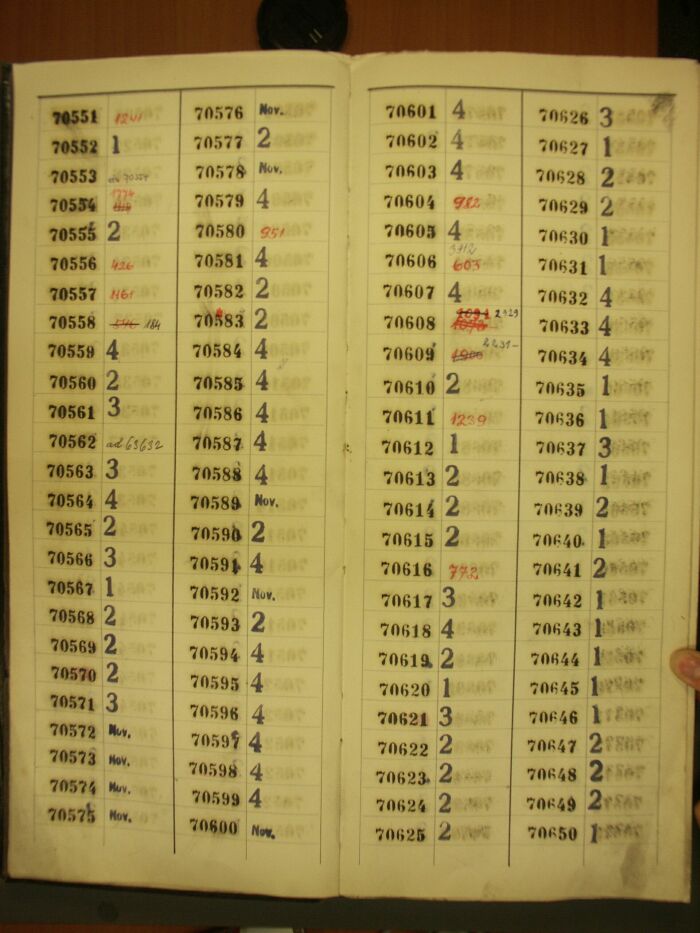 70551 1241
70552 1
70553 ad 70554
70554 1774
70555 2
70556 426
70557 1161
70558 596 184
70559 4
70560 2
70561 3
70562 ad 63632
70563 3
70564 4
70565 2
70566 3
70567 1
70568 2
70569 2
70570 2
70571 3
70572 Nov.
70573 Nov.
70574 Nov.
70575 Nov.
70576 Nov.
70577 2
70578 Nov.
70579 4
70580 951
70581 4
70582 2
70583 2
70584 4
70585 4
70586 4
70587 4
70588 4
70589 Nov.
70590 2
70591 4
70592 Nov.
70593 2
70594 4
70595 4
70596 4
70597 4
70598 4
70599 4
70600 Nov.
70601 4
70602 4
70603 4
70604 982
70605 4
70606 603
70607 4
70608 2329
70609 2231-
70610 2
70611 1239
70612 1
70613 2
70614 2
70615 2
70616 772
70617 3
70618 4
70619 2
70620 1
70621 3
70622 2
70623 2
70624 2
70625 2
70626 3
70627 1
70628 2
70629 2
70630 1
70631 1
70632 4
70633 4
70634 4
70635 1
70636 1
70637 3
70638 1
70639 2
70640 1
70641 2
70642 1
70643 1
70644 1
70645 1
70646 1
70647 2
70648 2
70649 2
70650 1